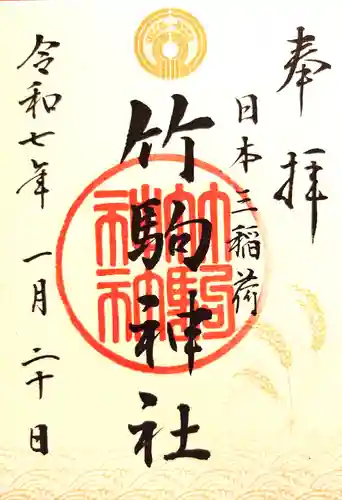 奉拝
日本三稲荷
竹駒神社
竹駒神社
令和七年 一月 二十日